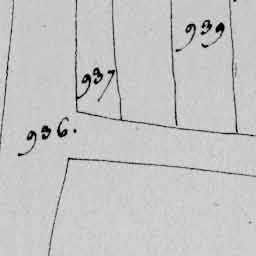 939
937
936.